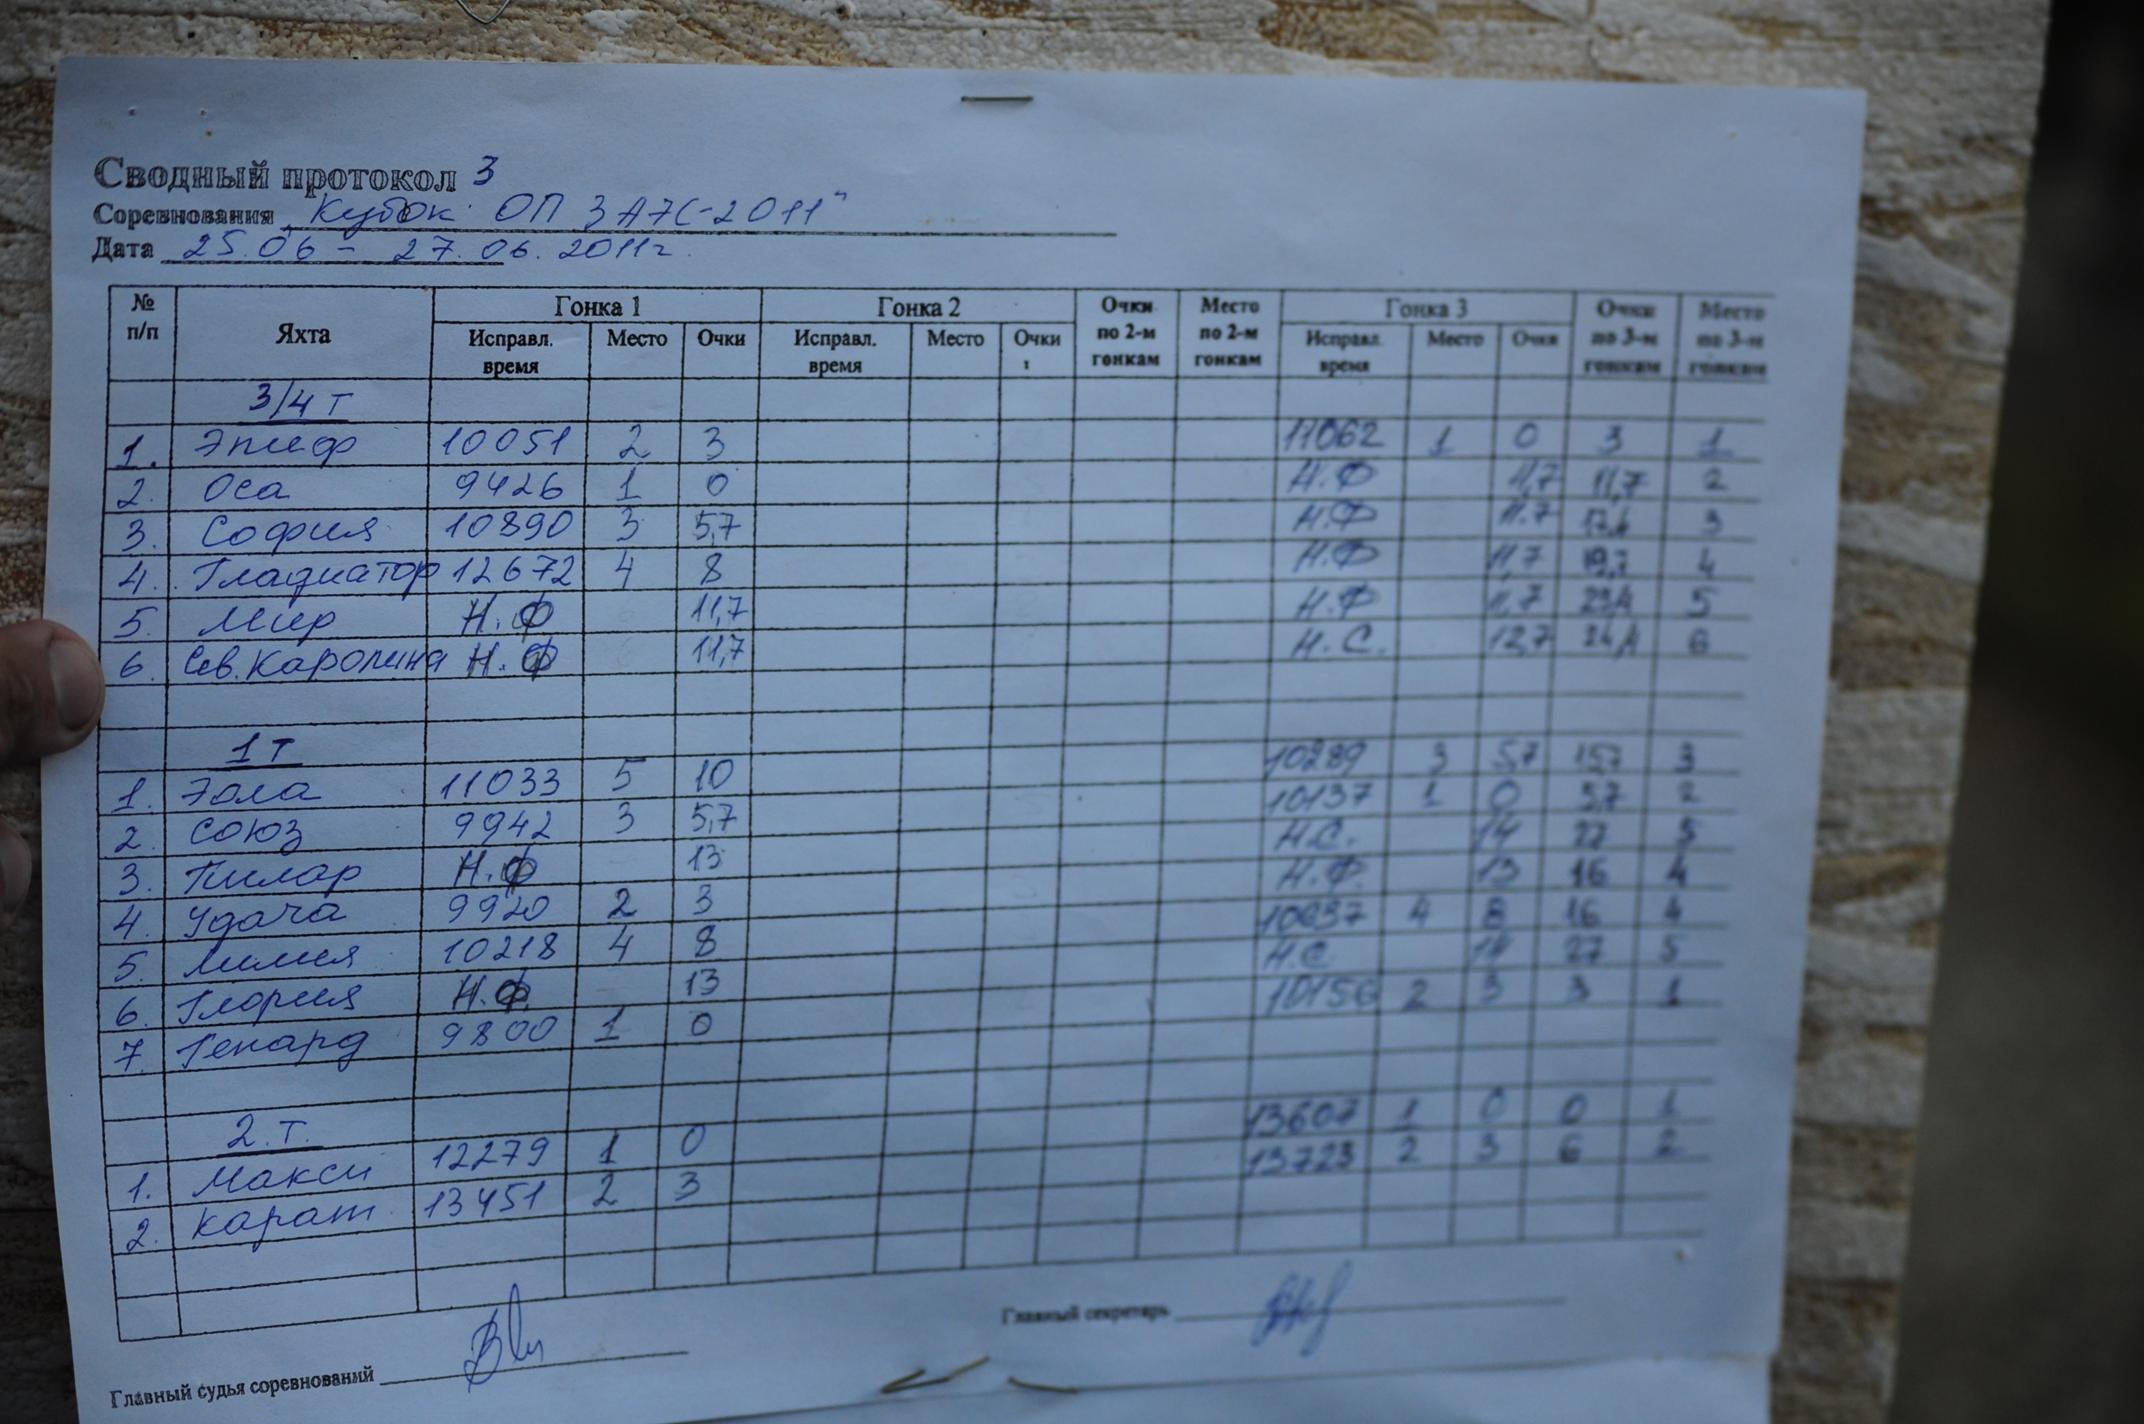 Сводный протокол 3
Соревнования "Кубок ОП ЗАЭС-2011"
Дата 25.06 - 27.06.2011г.
№ п/п Яхта Гонка 1 Гонка 2 Очки по 2-м гонкам Место по 2-м гонкам Гонка 3 Очки по 3-м гонкам Место по 3-м гонкам
Исправл. время Место Очки Исправл. время Место Очки Исправл. время Место Очки
3/4 т
1. Эпиф 10051 2 3 11062 1 0 3 1
2. Оса 9426 1 0 Н.Ф 11,7 11,7 2
3. София 10890 3 5,7 Н.Ф 11.7 17,4 3
4. Гладиатор 12672 4 8 Н.Ф 11,7 19,7 4
5. Мир Н.Ф 11,7 Н.Ф 11,7 23,4 5
6. Св. Каролина Н.Ф 11,7 Н.С. 12,7 24,4 6
1 т
1. Эола 11033 5 10 10289 3 5,7 15,7 3
2. Союз 9942 3 5,7 10137 1 0 5,7 2
3. Пилар Н.Ф 13 Н.С. 14 27 5
4. Удача 9920 2 3 Н.Ф. 13 16 4
5. Лилия 10218 4 8 4 8 16 4
6. Глория Н.Ф. 13 Н.С. 14 27 5
7. Генард 9800 1 0 10156 2 3 3 1
2.т.
1. Макси 12279 1 0 13607 1 0 0 1
2. Карат 13451 2 3 13723 2 3 6 2
Главный судья соревнований
Главный секретарь